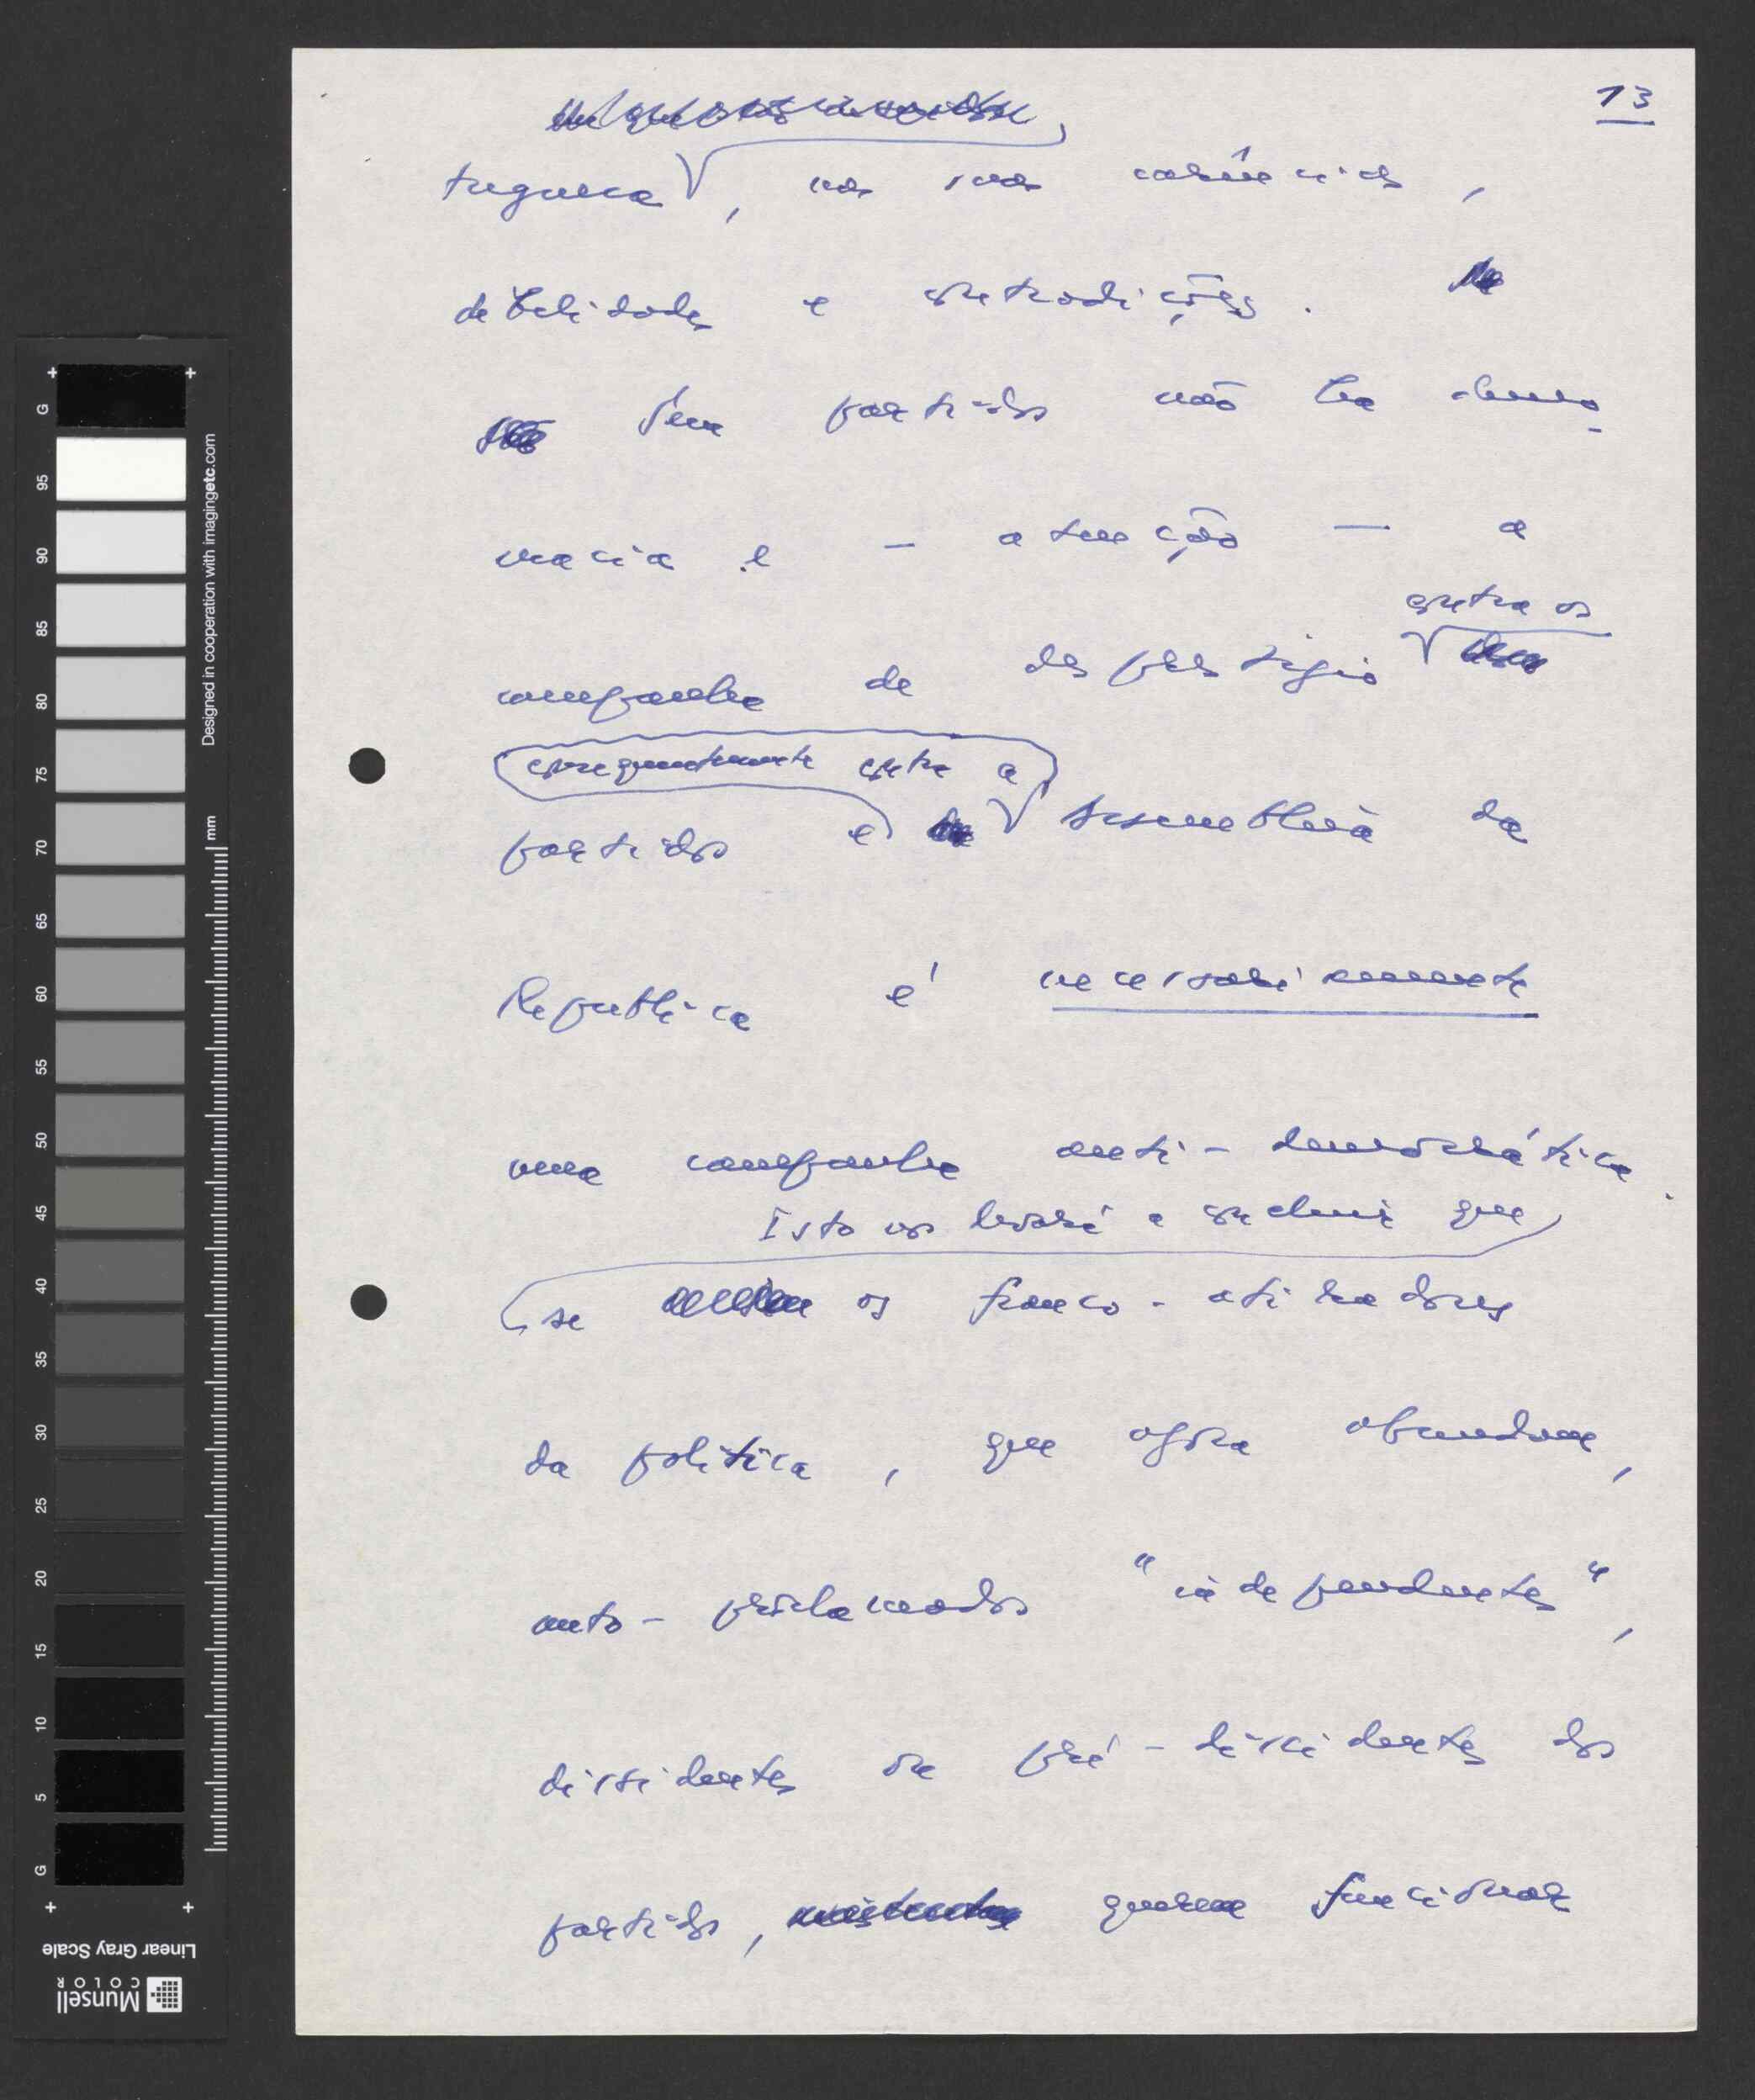 13
tuguesa, nas suas carências,
debilidades e contradições.
Sem partidos não ha demo-
cracia e - atenção - a
contra os
campanha de desprestigio
consequentemente contra a
partidos e Assembleia da
Republica é necessariamente
uma campanha anti-democrática.
Isto nos levará a concluir que
se os franco-atiradores
da politica, que agora abundam,
auto-proclamados "independentes",
dissidentes ou pré-dissidentes dos
partidos, querem funcionar
G 95 90 85 80 75 70 65 60 55 50 45 40 35 30 25 20 15 10 5 G
Designed in cooperation with imagingetc.com
mm
Linear Gray Scale
Munsell
COLOR